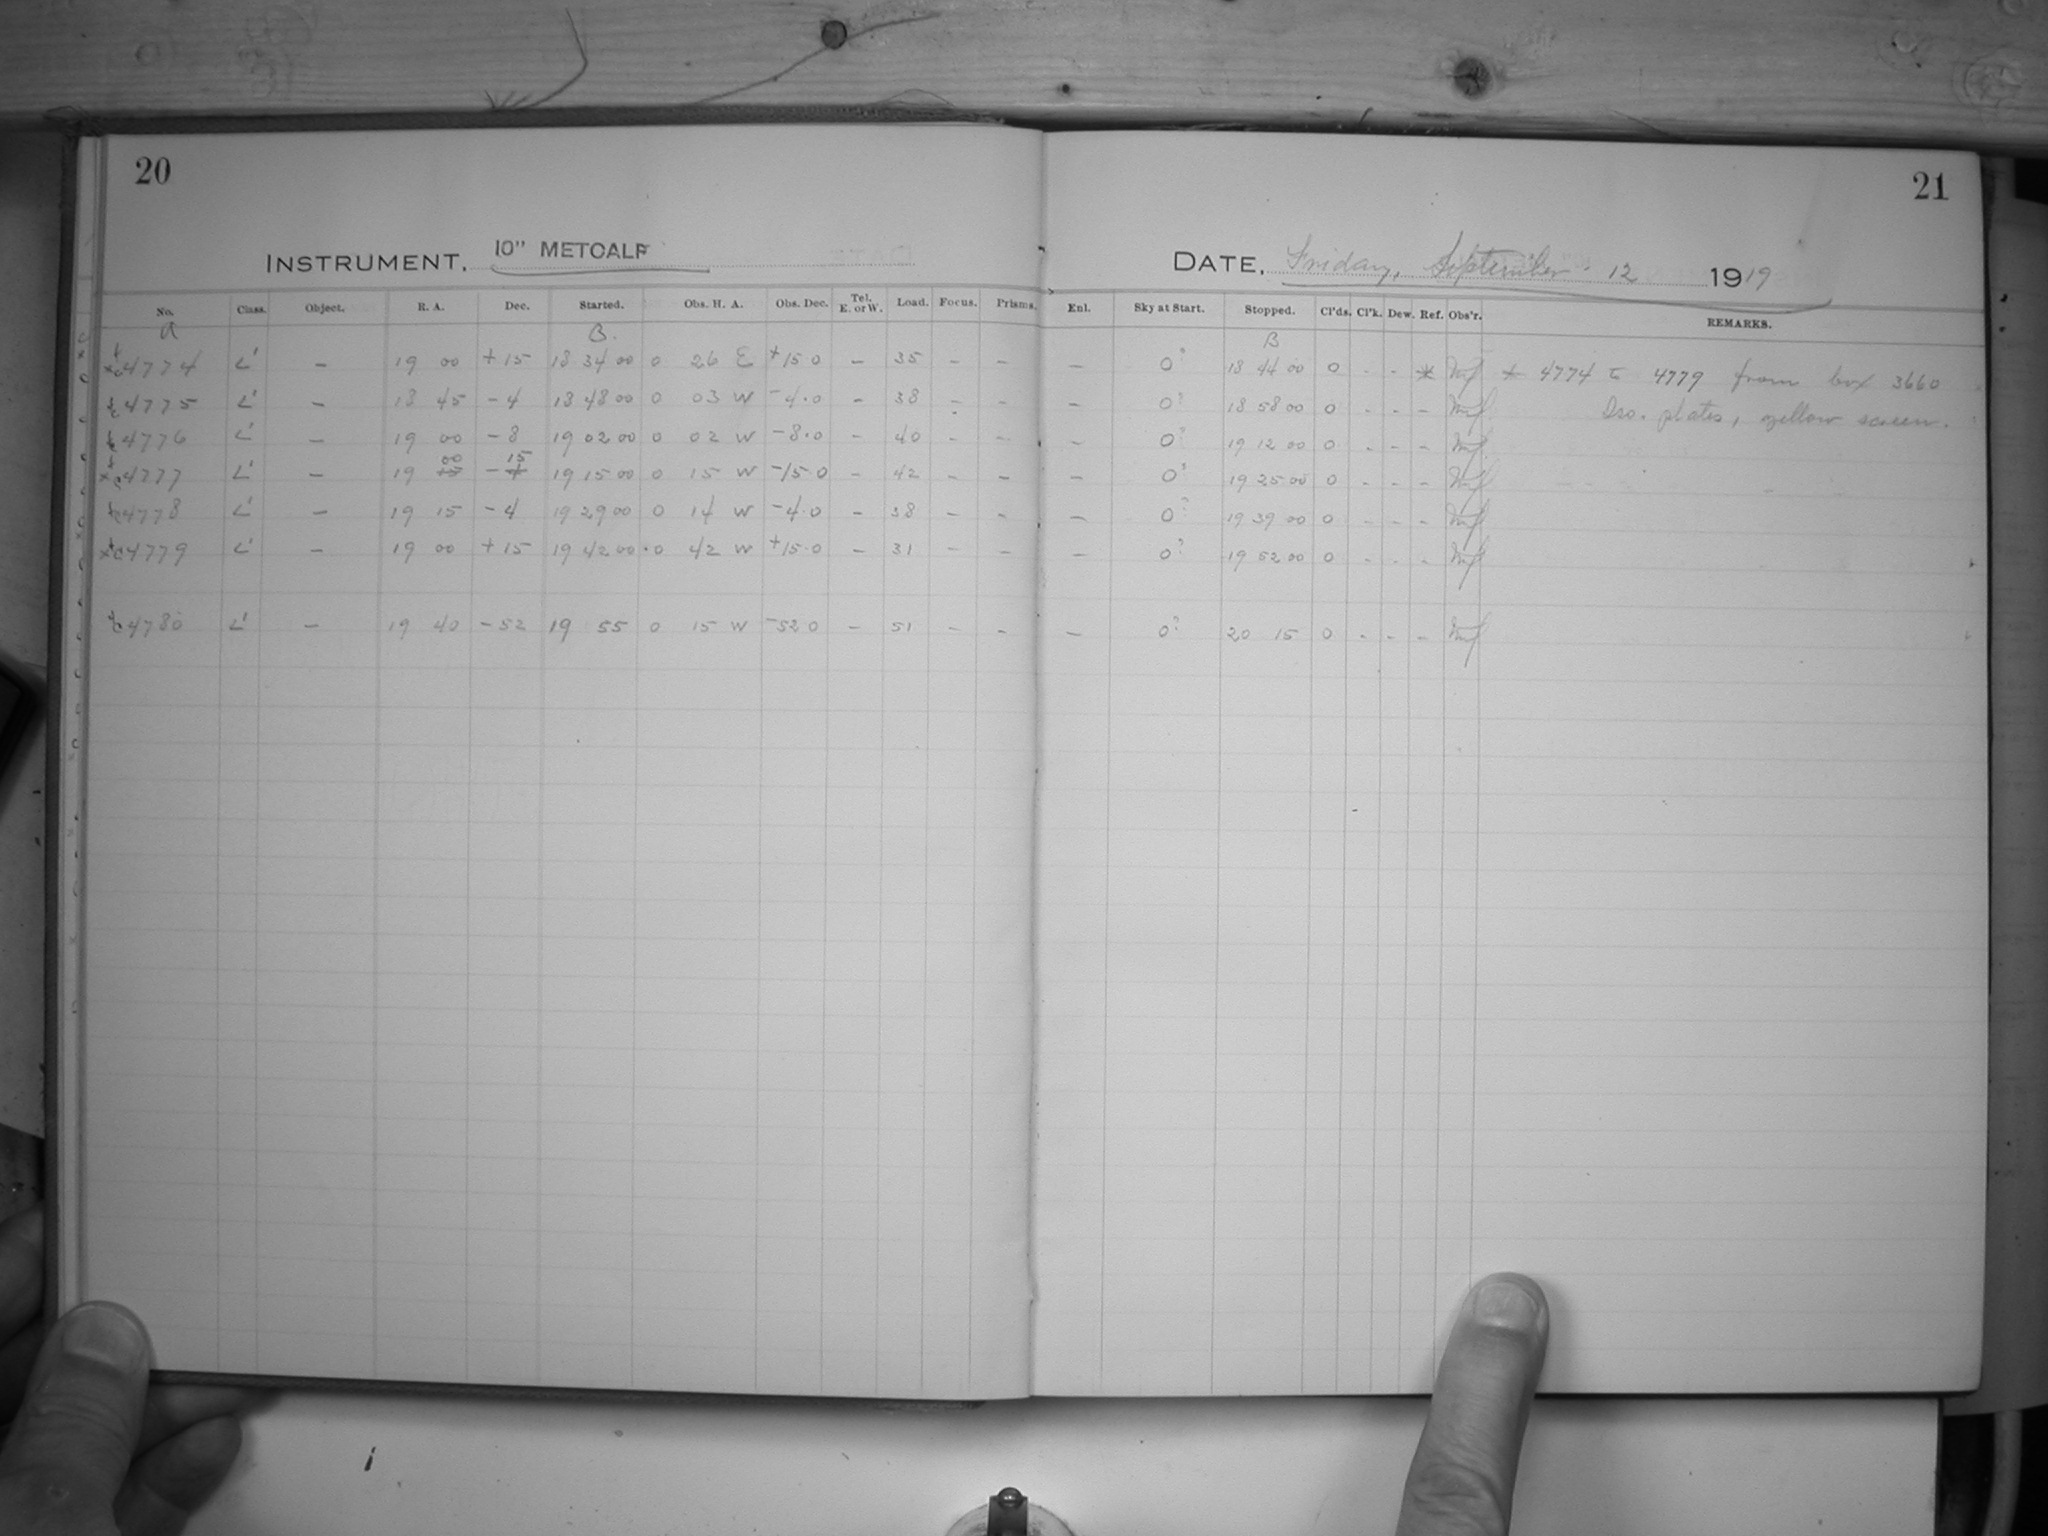 20
21
INSTRUMENT, 10" METCALF
DATE, Friday, September 12 1919
No. Class. Object. R. A. Dec. Started. Obs. H. A. Obs. Dec. Tel. E. or W. Load. Focus. Prisms. Enl. Sky at Start. Stopped. Cl'ds. Cl'k. Dew. Ref. Obs'r. REMARKS.
a B. B
4774 L' – 19 00 +15 18 34 00 0 26 E +15.0 – 35 – – – 0? 18 44 00 0 - - * * 4774 to 4779 from box 3660
4775 L' – 18 45 -4 18 48 00 0 03 W -4.0 – 38 – – – 0? 18 58 00 0 - - - Iso. plates, yellow screen.
4776 L' – 19 00 -8 19 02 00 0 02 W -8.0 – 40 – – – 0? 19 12 00 0 - - -
00 15
4777 L' – 19 15 -4 19 15 00 0 15 W -15.0 – 42 – – – 0? 19 25 00 0 - - -
4778 L' – 19 15 -4 19 29 00 0 14 W -4.0 – 38 – – – 0? 19 39 00 0 - - -
4779 L' – 19 00 +15 19 42 00 0 42 W +15.0 – 31 – – – 0? 19 52 00 0 - - -
4780 L' – 19 40 -52 19 55 0 15 W -52 0 – 51 – – – 0? 20 15 0 - - -